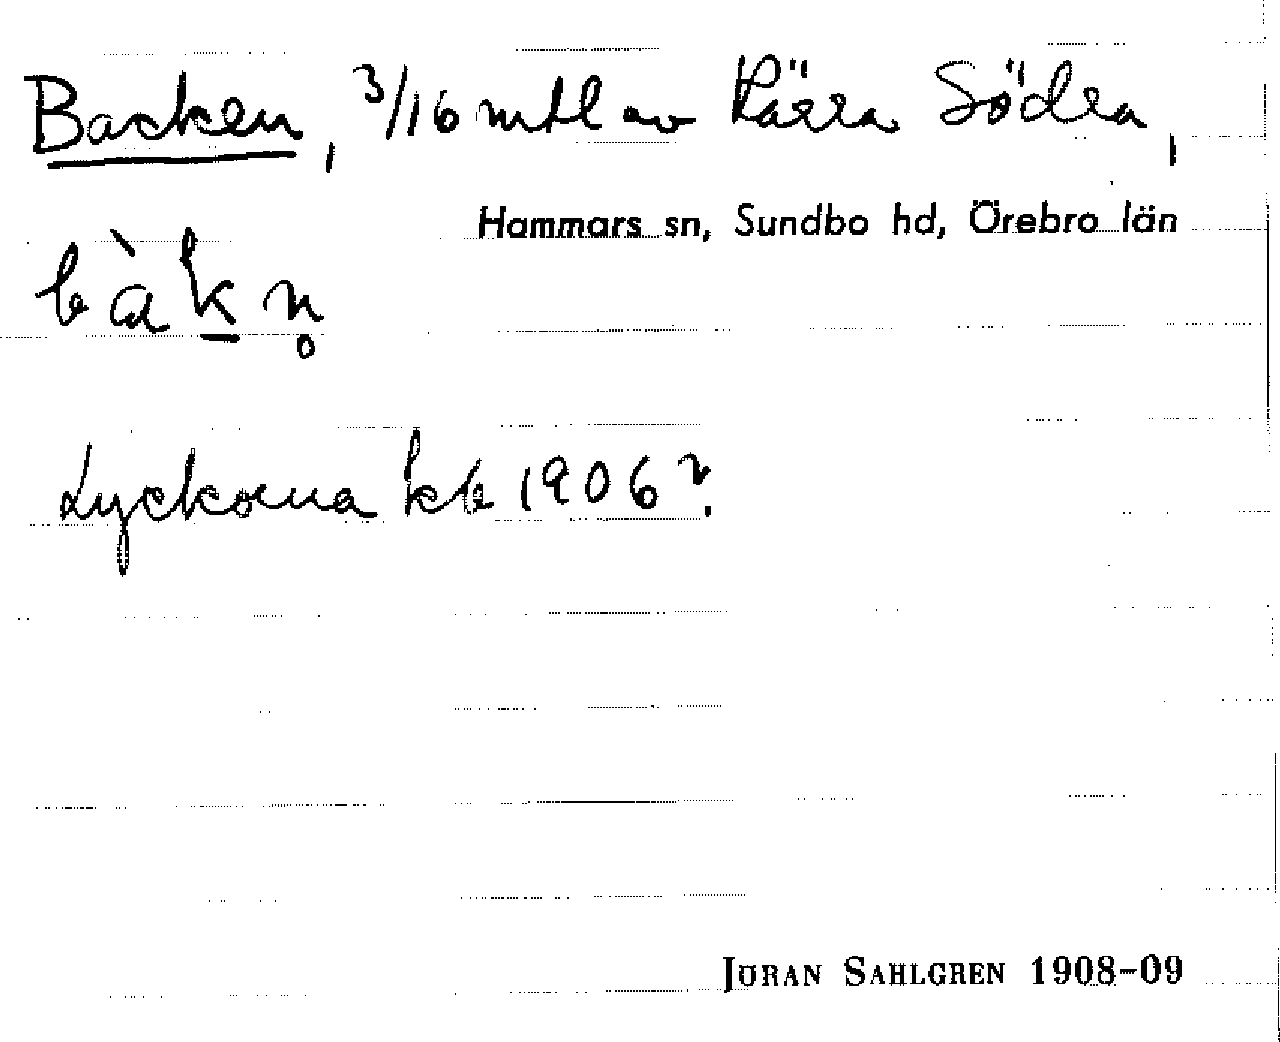 Backen, 3/16 mtl av Kärra Södra,
Hammars sn, Sundbo hd, Örebro län
bàk̲n̥
Lyckorna kb 1906?
JÖRAN SAHLGREN 1908-09